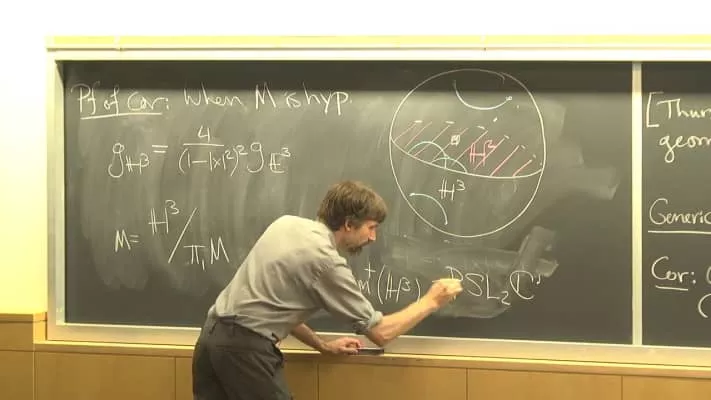 Pf of Cor: When M is hyp.
g_ℍ³ = 4/(1-|x|²)² g_𝔼³
ℍ²
ℍ³
M = ℍ³/π₁M
⁺(ℍ³) PSL₂ℂ
[Thur
geom
Generic
Cor: